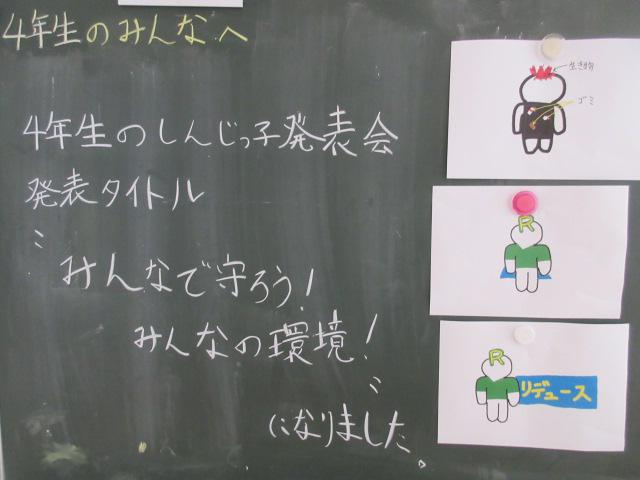 4年生のみんなへ
4年生のしんじっ子発表会
発表タイトル
〝みんなで守ろう!
みんなの環境!〟
になりました。
生き物
ゴミ
R
R
リデュース